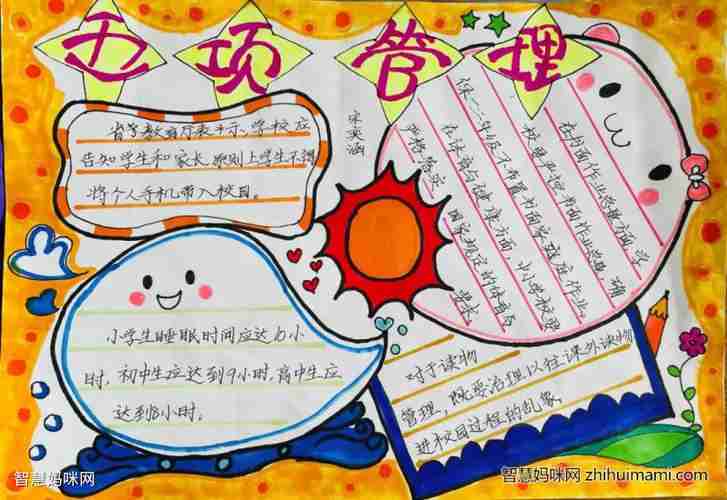 五项管理
省学教育厅表示,学校应
告知学生和家长原则上学生不得
将个人手机带入校园。
宋奕涵
在书面作业总量方面,学
校要严控书面作业总量,确
保一二年级不布置书面家庭作业。
在体育与健康方面,中小学校要
严格落实国家规定的体育与
小学生睡眠时间应达10小
时,初中生应达到9小时,高中生应
达到8小时。
对于读物
管理,既要治理以往课外读物
进校园过程的乱象,
智慧妈咪网
智慧妈咪网 zhihuimami.com